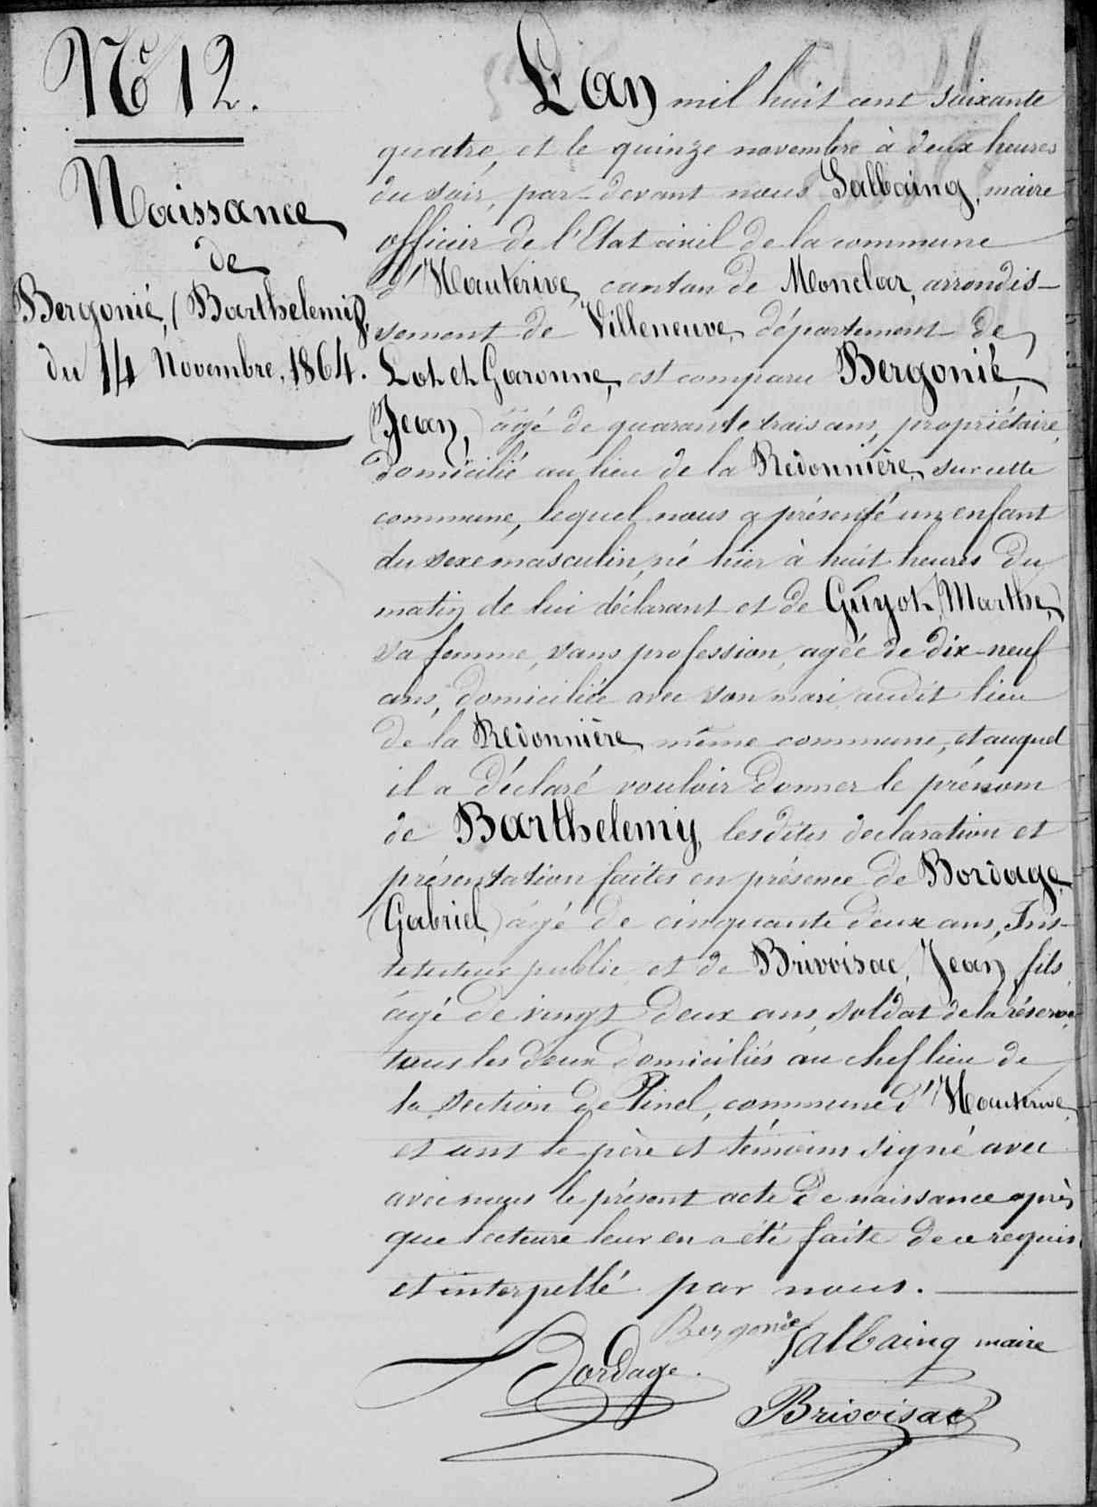 N° 12.
Naissance
de
Bergonié, (Barthelemy),
du 14 Novembre, 1864.
L'an mil huit cent soixante
quatre, et le quinze novembre à deux heures
du soir, par-devant nous Salbaing, maire
officier de l'Etat civil de la commune
d'Hauterive, canton de Monclar, arrondis-
sement de Villeneuve, département de
Lot et Garonne, est comparu Bergonié,
(Jean,) âgé de quarante trois ans, propriétaire,
domicilié au lieu de la Redonnière, sur cette
commune, lequel nous a présenté un enfant
du sexe masculin, né hier à huit heures du
matin de lui déclarant et de Guyot, (Marthe,)
sa femme, sans profession, agée de dix-neuf
ans, domiciliée avec son mari audit lieu
de la Redonnière, même commune, et auquel
il a déclaré vouloir donner le prénom
de Barthelemy, lesdites declaration et
présentation faites en présence de Bordage
(Gabriel,) âgé de cinquante deux ans, Ins-
tituteur public et de Brivoisac, Jean fils
âgé de vingt deux ans, soldat de la réserve,
tous les deux domiciliés au chef lieu de
la section de Pinel, commune d'Hauterive,
et ont le père et témoins signé avec
avec nous le présent acte de naissance après
que lecture leur en a été faite de ce requis
et interpellé par nous.
Bergonié Salbaing maire
Bordage.
Brivoisac